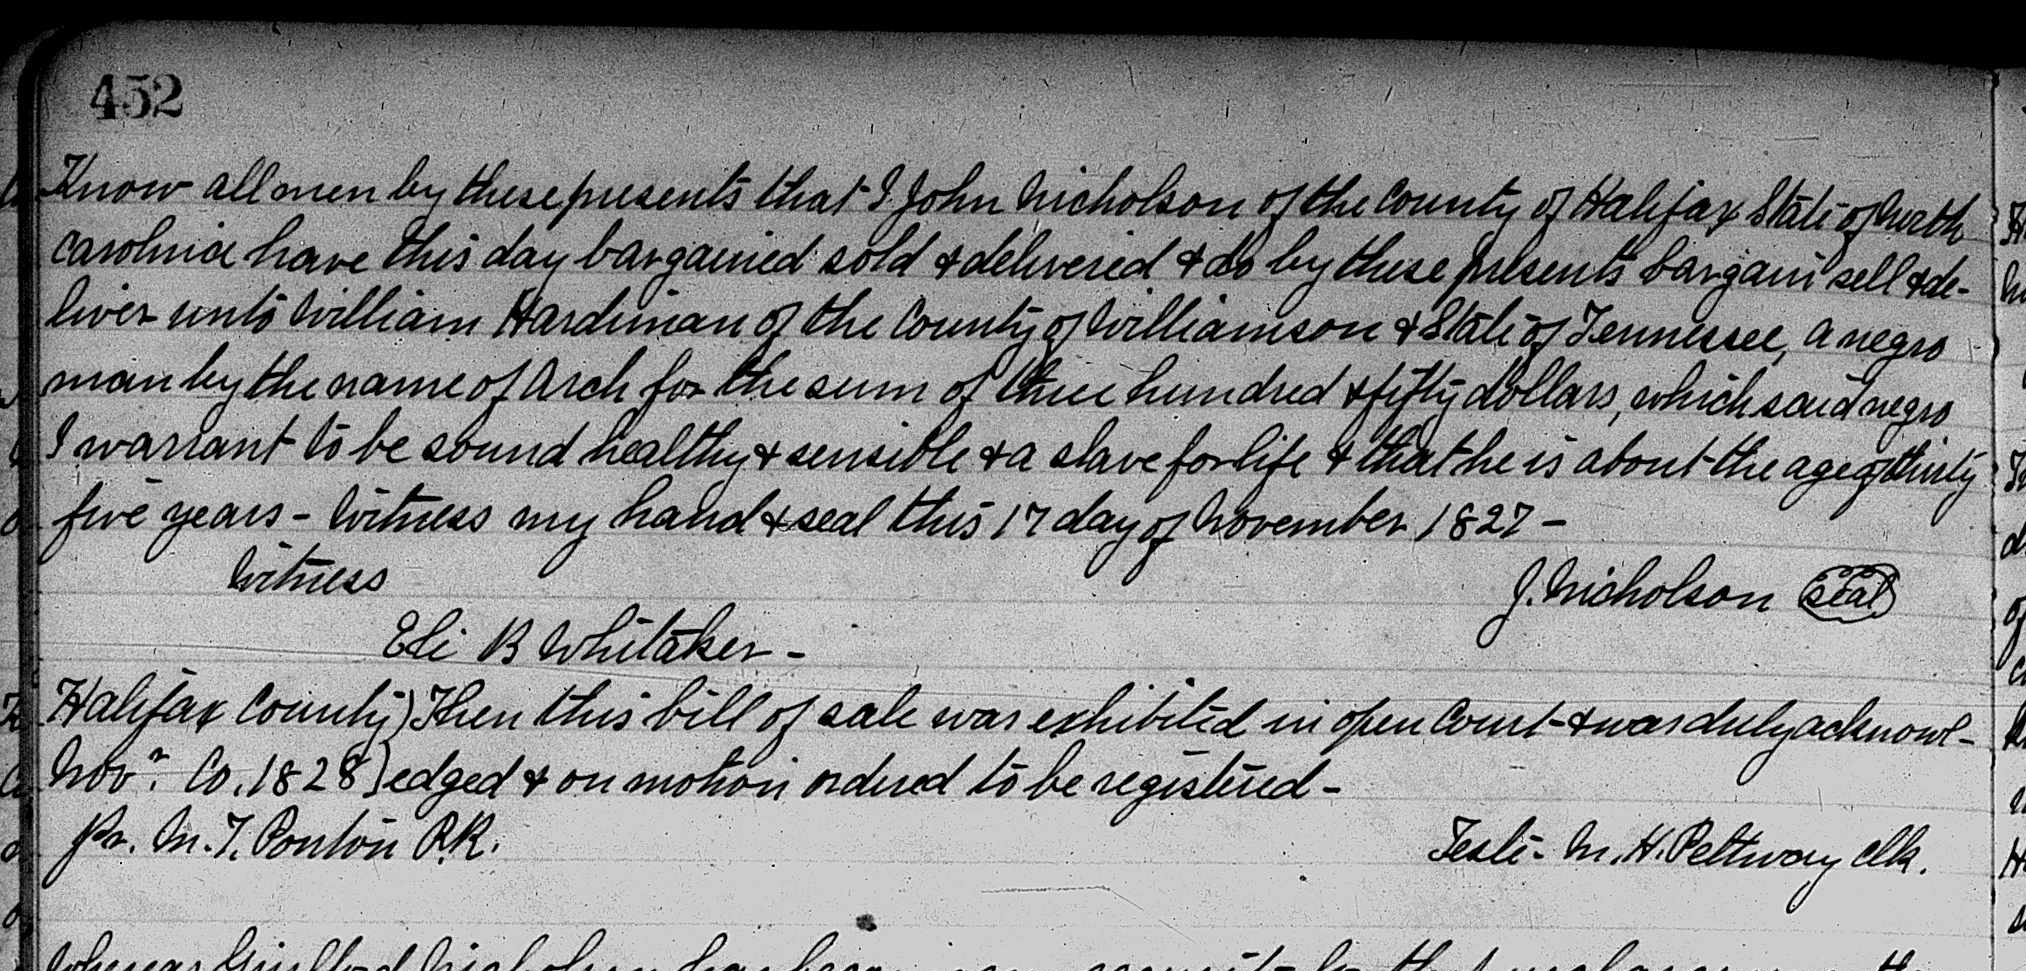 452
Know all men by these presents that I John Nicholson of the County of Halifax State of North
Carolina have this day bargained sold & delivered & do by these presents bargain sell & de-
liver unto William Hardiman of the County of Williamson & State of Tennessee, a negro
man by the name of Arch for the sum of three hundred & fifty dollars, which said negro
I warrant to be sound healthy & sensible & a slave for life & that he is about the age of thirty
five years - Witness my hand & seal this 17 day of November 1827 -
Witness
J. Nicholson seal
Eli B Whitaker -
Halifax County) Then this bill of sale was exhibited in open Court & was duly acknowl-
Novr. Co. 1828) edged & on motion ordered to be registered -
pr. M. T. Ponton P.R.
Teste - M. H. Pettway clk.
Whereas Nicholson has been